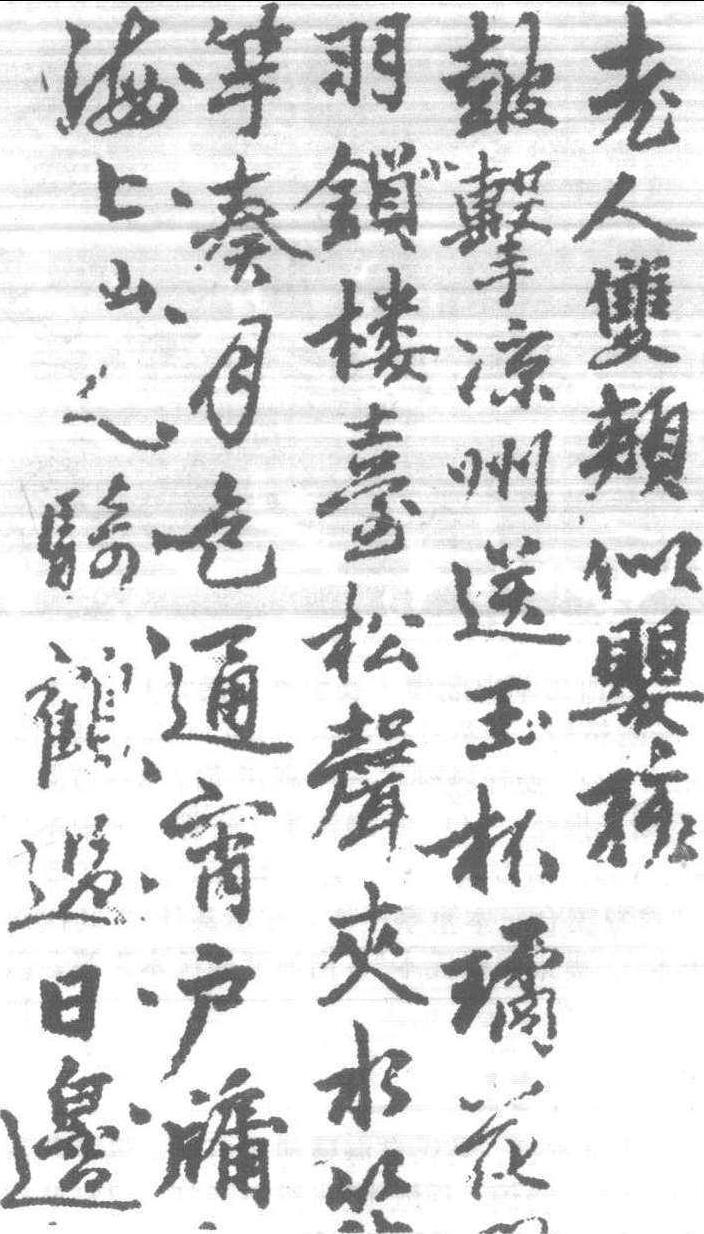 老人雙頰似嬰孩
鼓擊凉州送玉杯璚花
羽鎖楼臺松聲夾水
竽奏月色通宵户牖
海上山人騎鶴過日邊